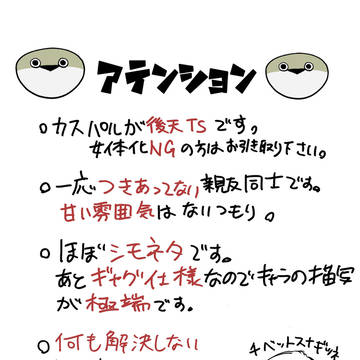 アテンション
○カスパルが後天TSです。
女体化NGの方はお引き取り下さい。
○一応つきあってない親友同士です。
甘い雰囲気はないつもり。
○ほぼシモネタです。
あとギャグ仕様なのでキャラの描写
が極端です。
○何も解決しない
チベットスナギツネ